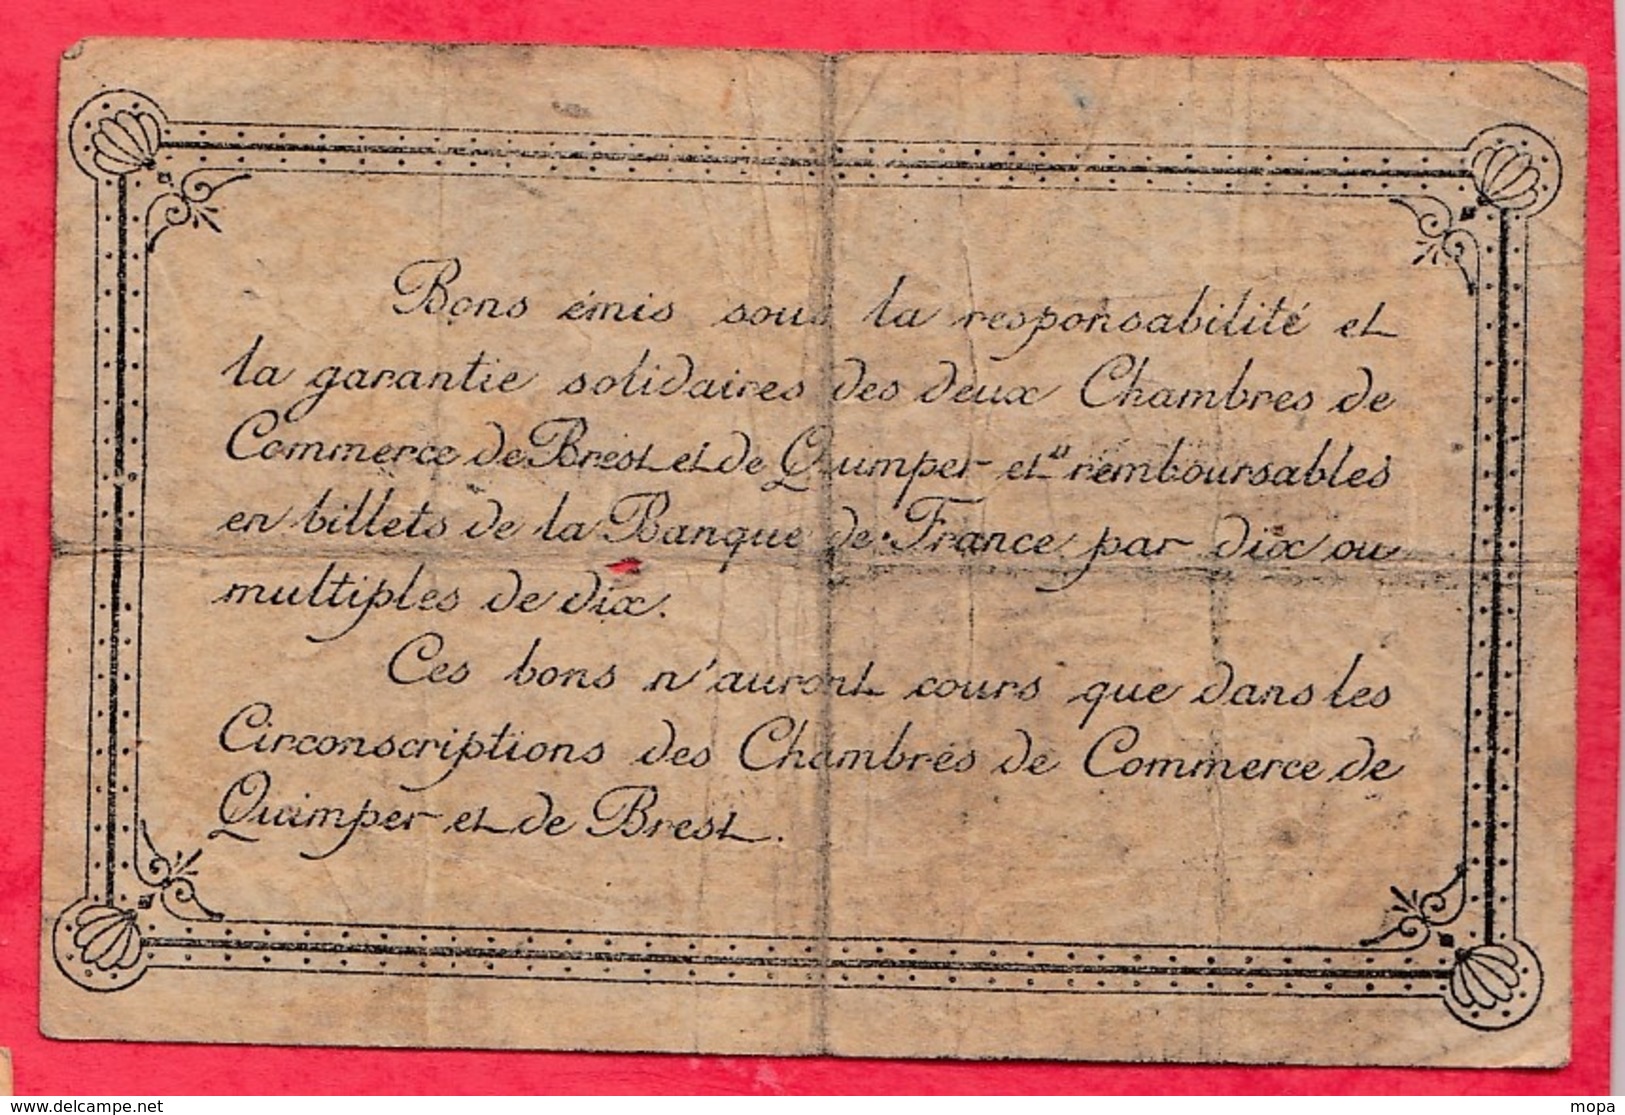 Bons émis sous la responsabilité et
la garantie solidaires des deux Chambres de
Commerce de Brest et de Quimper et remboursables
en billets de la Banque de France par dix ou
multiples de dix.
Ces bons n'auront cours que dans les
Circonscriptions des Chambres de Commerce de
Quimper et de Brest.
www.delcampe.net
mopa